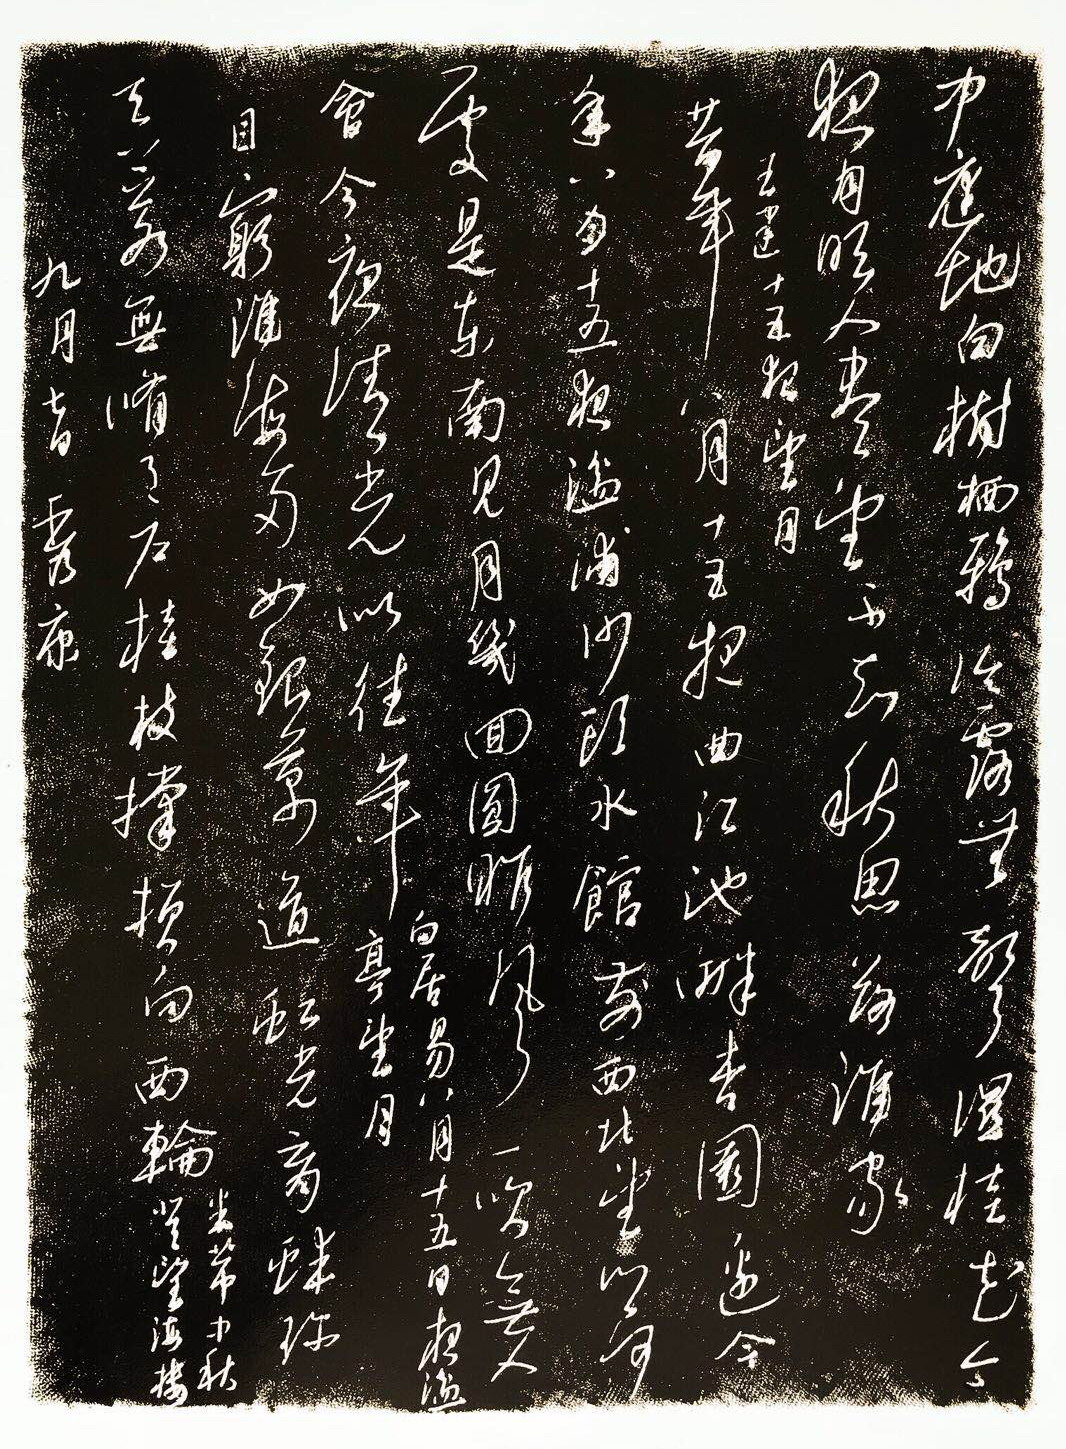 中庭地白樹栖鴉冷露無聲濕桂花今
夜月明人盡望不知秋思落誰家
王建十五夜望月
昔年八月十五夜曲江池畔杏園邊今
年八月十五夜湓浦沙頭水館前西北望鄉何
處是東南見月幾回圓昨風一吹無人
會今夜清光似往年
白居易八月十五日夜湓
亭望月
目窮淮海兩如銀萬道虹光育蚌珍
天上若無修月戶桂枝撐損向西輪
米芾中秋
登望海樓
九月 康